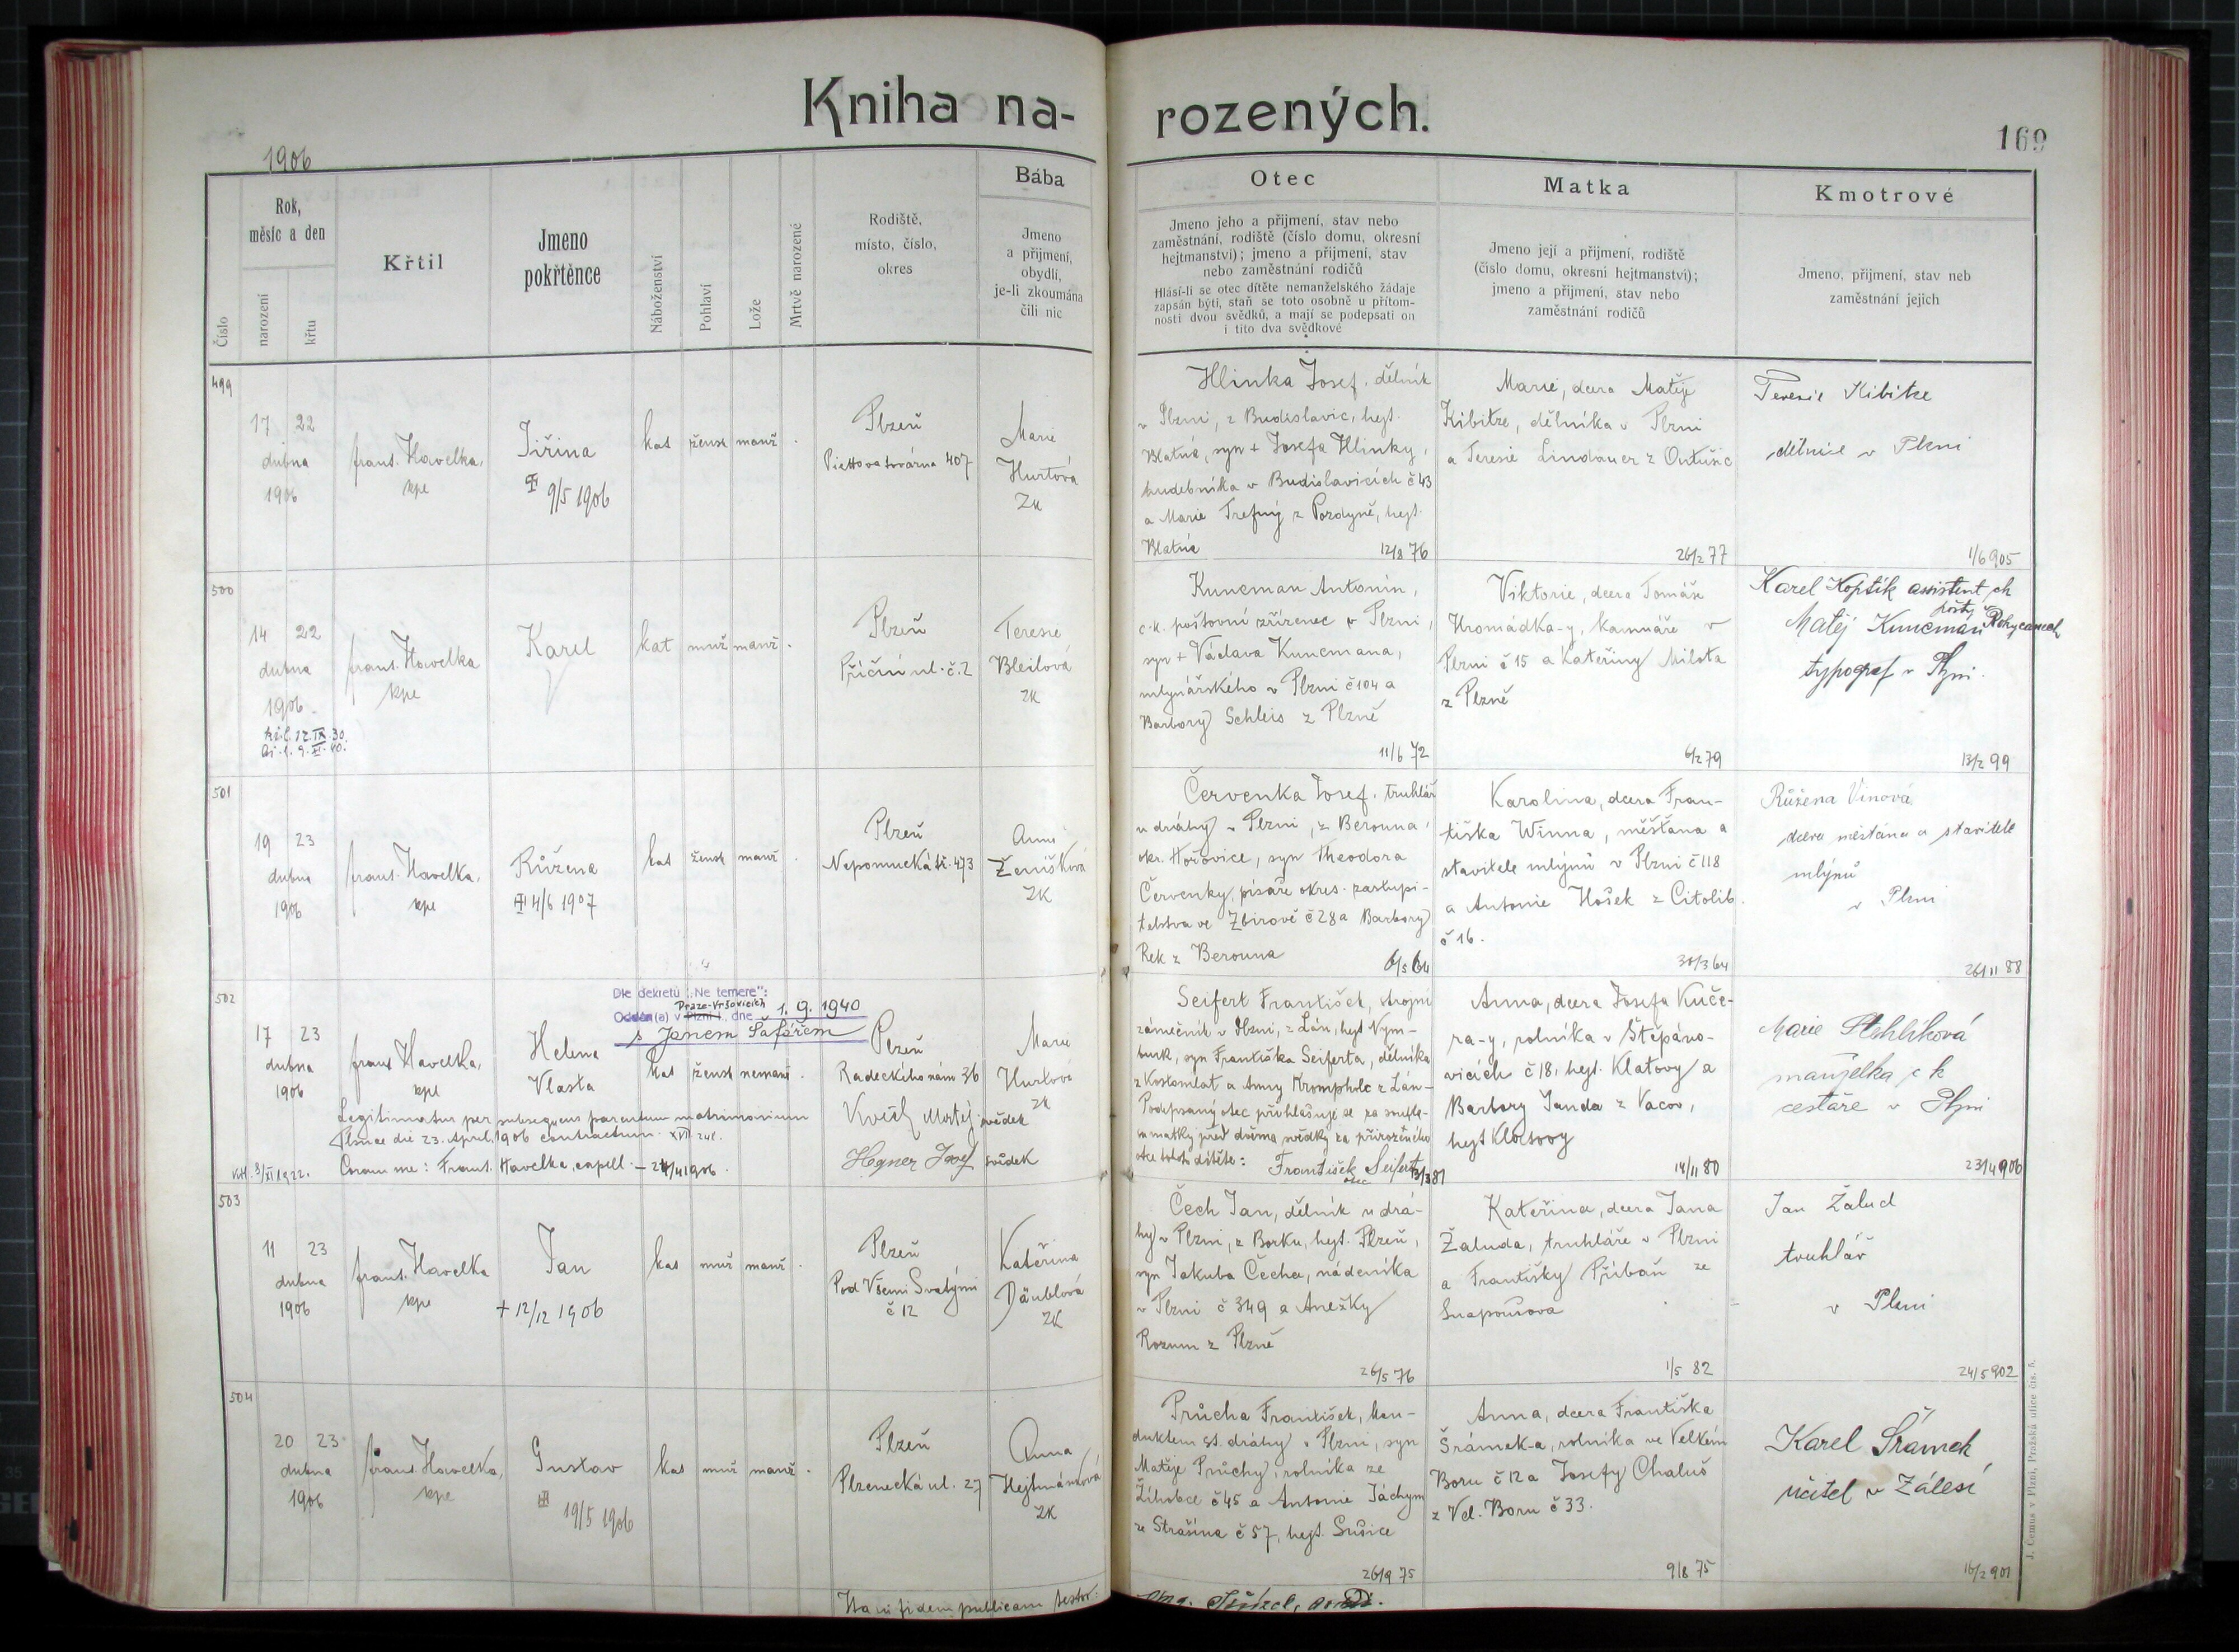 Kniha na-
rozených.
169
1906
Číslo
Rok,
měsíc a den
narození
křtu
Křtil
Jmeno
pokřtěnce
Náboženství
Pohlaví
Lože
Mrtvě narozené
Rodiště,
místo, číslo,
okres
Bába
Jmeno
a přijmení,
obydlí,
je-li zkoumána
čili nic
Otec
Jmeno jeho a přijmení, stav nebo
zaměstnání, rodiště (číslo domu, okresní
hejtmanství); jmeno a přijmení, stav
nebo zaměstnání rodičů
Hlásí-li se otec dítěte nemanželského žádaje
zapsán býti, staň se toto osobně u přítom-
nosti dvou svědků, a mají se podepsati on
i tito dva svědkové
Matka
Jmeno její a přijmení, rodiště
(číslo domu, okresní hejtmanství);
jmeno a přijmení, stav nebo
zaměstnání rodičů
Kmotrové
Jmeno, přijmení, stav neb
zaměstnání jejich
499
17 22
dubna
1906
frant. Havelka,
kpe
Jiřina
9/5 1906
kat
žensk
manž
Plzeň
Piettova továrna 407
Marie
Hurtová
Zk
Hlinka Josef, dělník
v Plzni, z Budislavic, hejt.
Blatná, syn + Josefa Hlinky,
hudebníka v Budislavicích č 43
a Marie Trefný z Pozdyně, hejt.
Blatná
12/8 76
Marie, dcera Matěje
Kibitze, dělníka v Plzni
a Teresie Lindauer z Ontušic
26/2 77
Teresie Kibitze
dělnice v Plzni
1/6 905
500
14 22
dubna
1906
frant. Havelka
kpe
Karel
kat
muž
manž
Plzeň
Příční ul. č. 2
Teresie
Bleilová
zk
Kuncman Antonín,
c. k. poštovní zřízenec v Plzni,
syn + Václava Kuncmana,
mlynářského v Plzni č 104 a
Barbory Schleis z Plzně
11/6 72
Viktorie, dcera Tomáše
Hromádka-y, kamnáře v
Plzni č 15 a Kateřiny Milota
z Plzně
6/2 79
Karel Koptík assistent ch
pošty v Rokycanech
Matěj Kuncmán
typograf v Plzni.
13/2 99
501
19 23
dubna
1906
frant. Havelka,
kpe
Růžena
4/6 1907
kat
žensk
manž
Plzeň
Nepomucká tř. 473
Anna
Ženíšková
ZK
Červenka Josef, truhlář
u dráhy v Plzni, z Berouna,
okr. Hořovice, syn Theodora
Červenky, písaře okres. zastupi-
telstva ve Zbirově č 28 a Barbory
Rek z Berouna
6/5 64
Karolina, dcera Fran-
tiška Winna, měšťana a
stavitele mlýnů v Plzni č 118
a Antonie Hošek z Citolib
č 16.
30/3 64
Růžena Vinová
dcera měšťana a stavitele
mlýnů
v Plzni
26/11 88
502
17 23
dubna
1906
frant Havelka,
kpe
Helena
Vlasta
Dle dekretu „Ne temere":
Praze-Vršovicích
Oddán(a) v Plzni I., dne 1. 9. 1940
s Janem Šafářem
kat
žensk
nemanž
Plzeň
Radeckého nám 36
Marie
Hurtová
zk
Legitimatus per subsequens parentum matrimonium
Plsnae die 23. April. 1906 contractum. XVII. 241.
Coram me: Frant. Havelka, capell. – 24/4 1906.
Matěj svědek
Hegner Josef svědek
Seifert František, strojní
zámečník v Plzni, z Lán, hejt Nym-
burk, syn Františka Seiferta, dělníka
z Kostomlat a Anny Kromphole z Lán–
Podepsaný otec přihlašuje se za souhla-
su matky před dvěma svědky za přirozeného
otce tohoto dítěte: František Seifert
otec
13/3 81
Anna, dcera Josefa Kuče-
ra-y, rolníka v Štěpáno-
vicích č 18, hejt. Klatovy a
Barbory Janda z Vacov,
hejt Klatovy
14/11 80
Marie Stehlíková
manželka c k
cestáře v Plzni
23/4 906
503
11 23
dubna
1906
frant. Havelka
kpe
Jan
+ 12/12 1906
kat
muž
manž
Plzeň
Pod Všemi Svatými
č 12
Kateřina
Däublová
ZK
Čech Jan, dělník u drá-
hy v Plzni, z Borku, hejt. Plzeň,
syn Jakuba Čecha, nádeníka
v Plzni č 349 a Anežky
Rozum z Plzně
26/5 76
Kateřina, dcera Jana
Žaluda, truhláře v Plzni
a Františky Příbaň ze
Snapoušova
1/5 82
Jan Žalud
truhlář
v Plzni
24/5 902
504
20 23
dubna
1906
frant. Havelka,
kpe
Gustav
19/5 1906
kat
muž
manž
Plzeň
Plzenecká ul. 27
Anna
Hejtmánková
ZK
Průcha František, kon-
duktem st. dráhy v Plzni, syn
Matěje Průchy, rolníka ze
Žihobce č 45 a Antonie Jáchym
ze Strašína č 57, hejt. Sušice
26/9 75
Anna, dcera Františka
Šrámek-a, rolníka ve Velkém
Boru č 12 a Josefy Chaluš
z Vel. Boru č 33.
9/8 75
Karel Šrámek
učitel v Zálesí
16/2 901
Ita in fidem publicam testor:
J. Cemus v Plzni, Pražská ulice čís. 5.